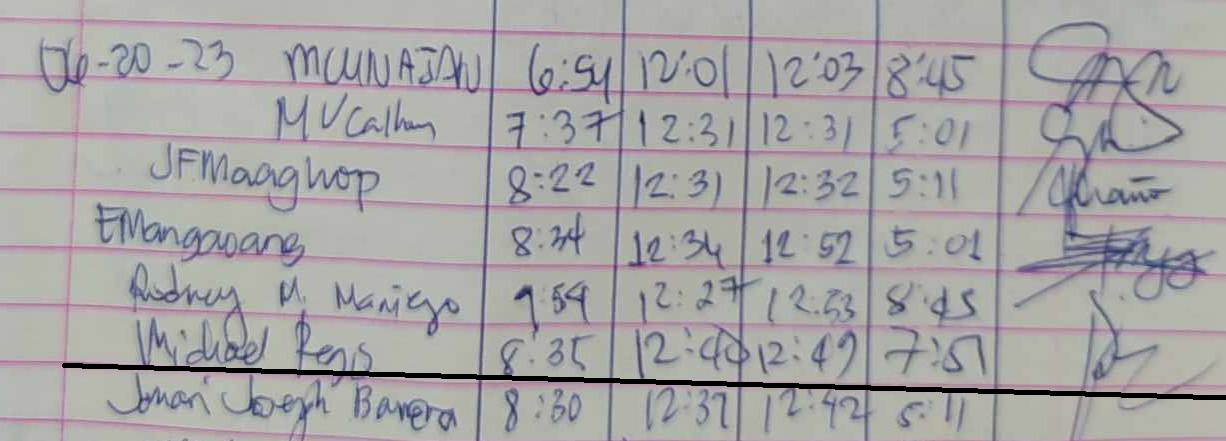 06-20-23 MCUNAJAN 6:54 12:01 12:03 8:45
MVCalham 7:37 12:31 12:31 5:01
JFMaaghop 8:22 12:31 12:32 5:11
EMangaoang 8:34 12:34 12:52 5:01
Rodney M. Maniego 9:54 12:27 12:53 8:45
Michael Regis 8:35 12:40 12:49 7:51
Jomari Joseph Barrera 8:30 12:37 12:42 5:11